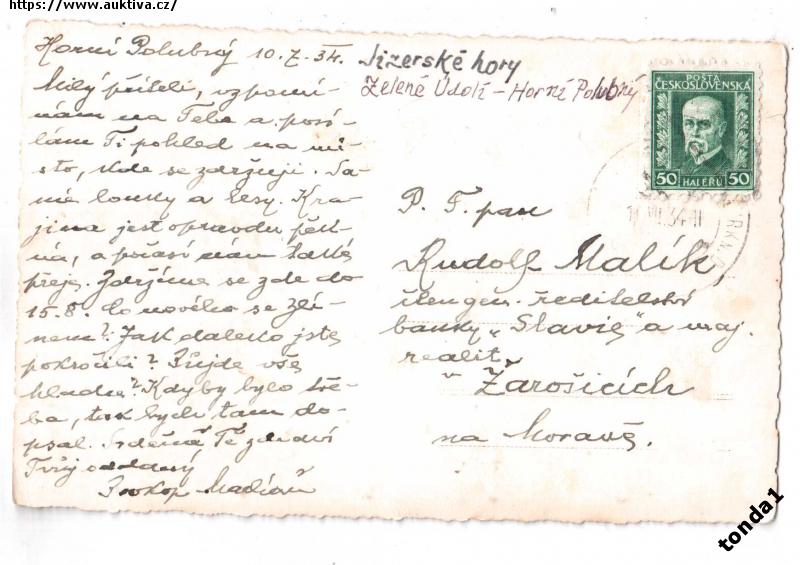 https://www.auktiva.cz/
Horní Polubný 10.7.34.
Milý příteli, vzpomí-
nám na Tebe a posí-
lám Ti pohled na mí-
sto, kde se zdržuji. Sa-
mé louky a lesy. Kra-
jina jest opravdu pěk-
ná, a počasí nám také
přeje. Zdržíme se zde do
15.8. Co nového se Zlí-
nem? Jak daleko jste
pokročili? Půjde vše
hladce? Kdyby bylo tře-
ba, tak bych tam do-
psal. Srdečně Tě zdraví
Tvůj oddaný
Prokop
Jizerské hory
Zelené Údolí - Horní Polubný
POŠTA
ČESKOSLOVENSKÁ
50 HALÉŘŮ 50
VII.34
P. T. pan
Rudolf Malík,
člen gen. ředitelství
banky "Slavie" a maj.
realit,
v Žarošicích
na Moravě.
tonda1